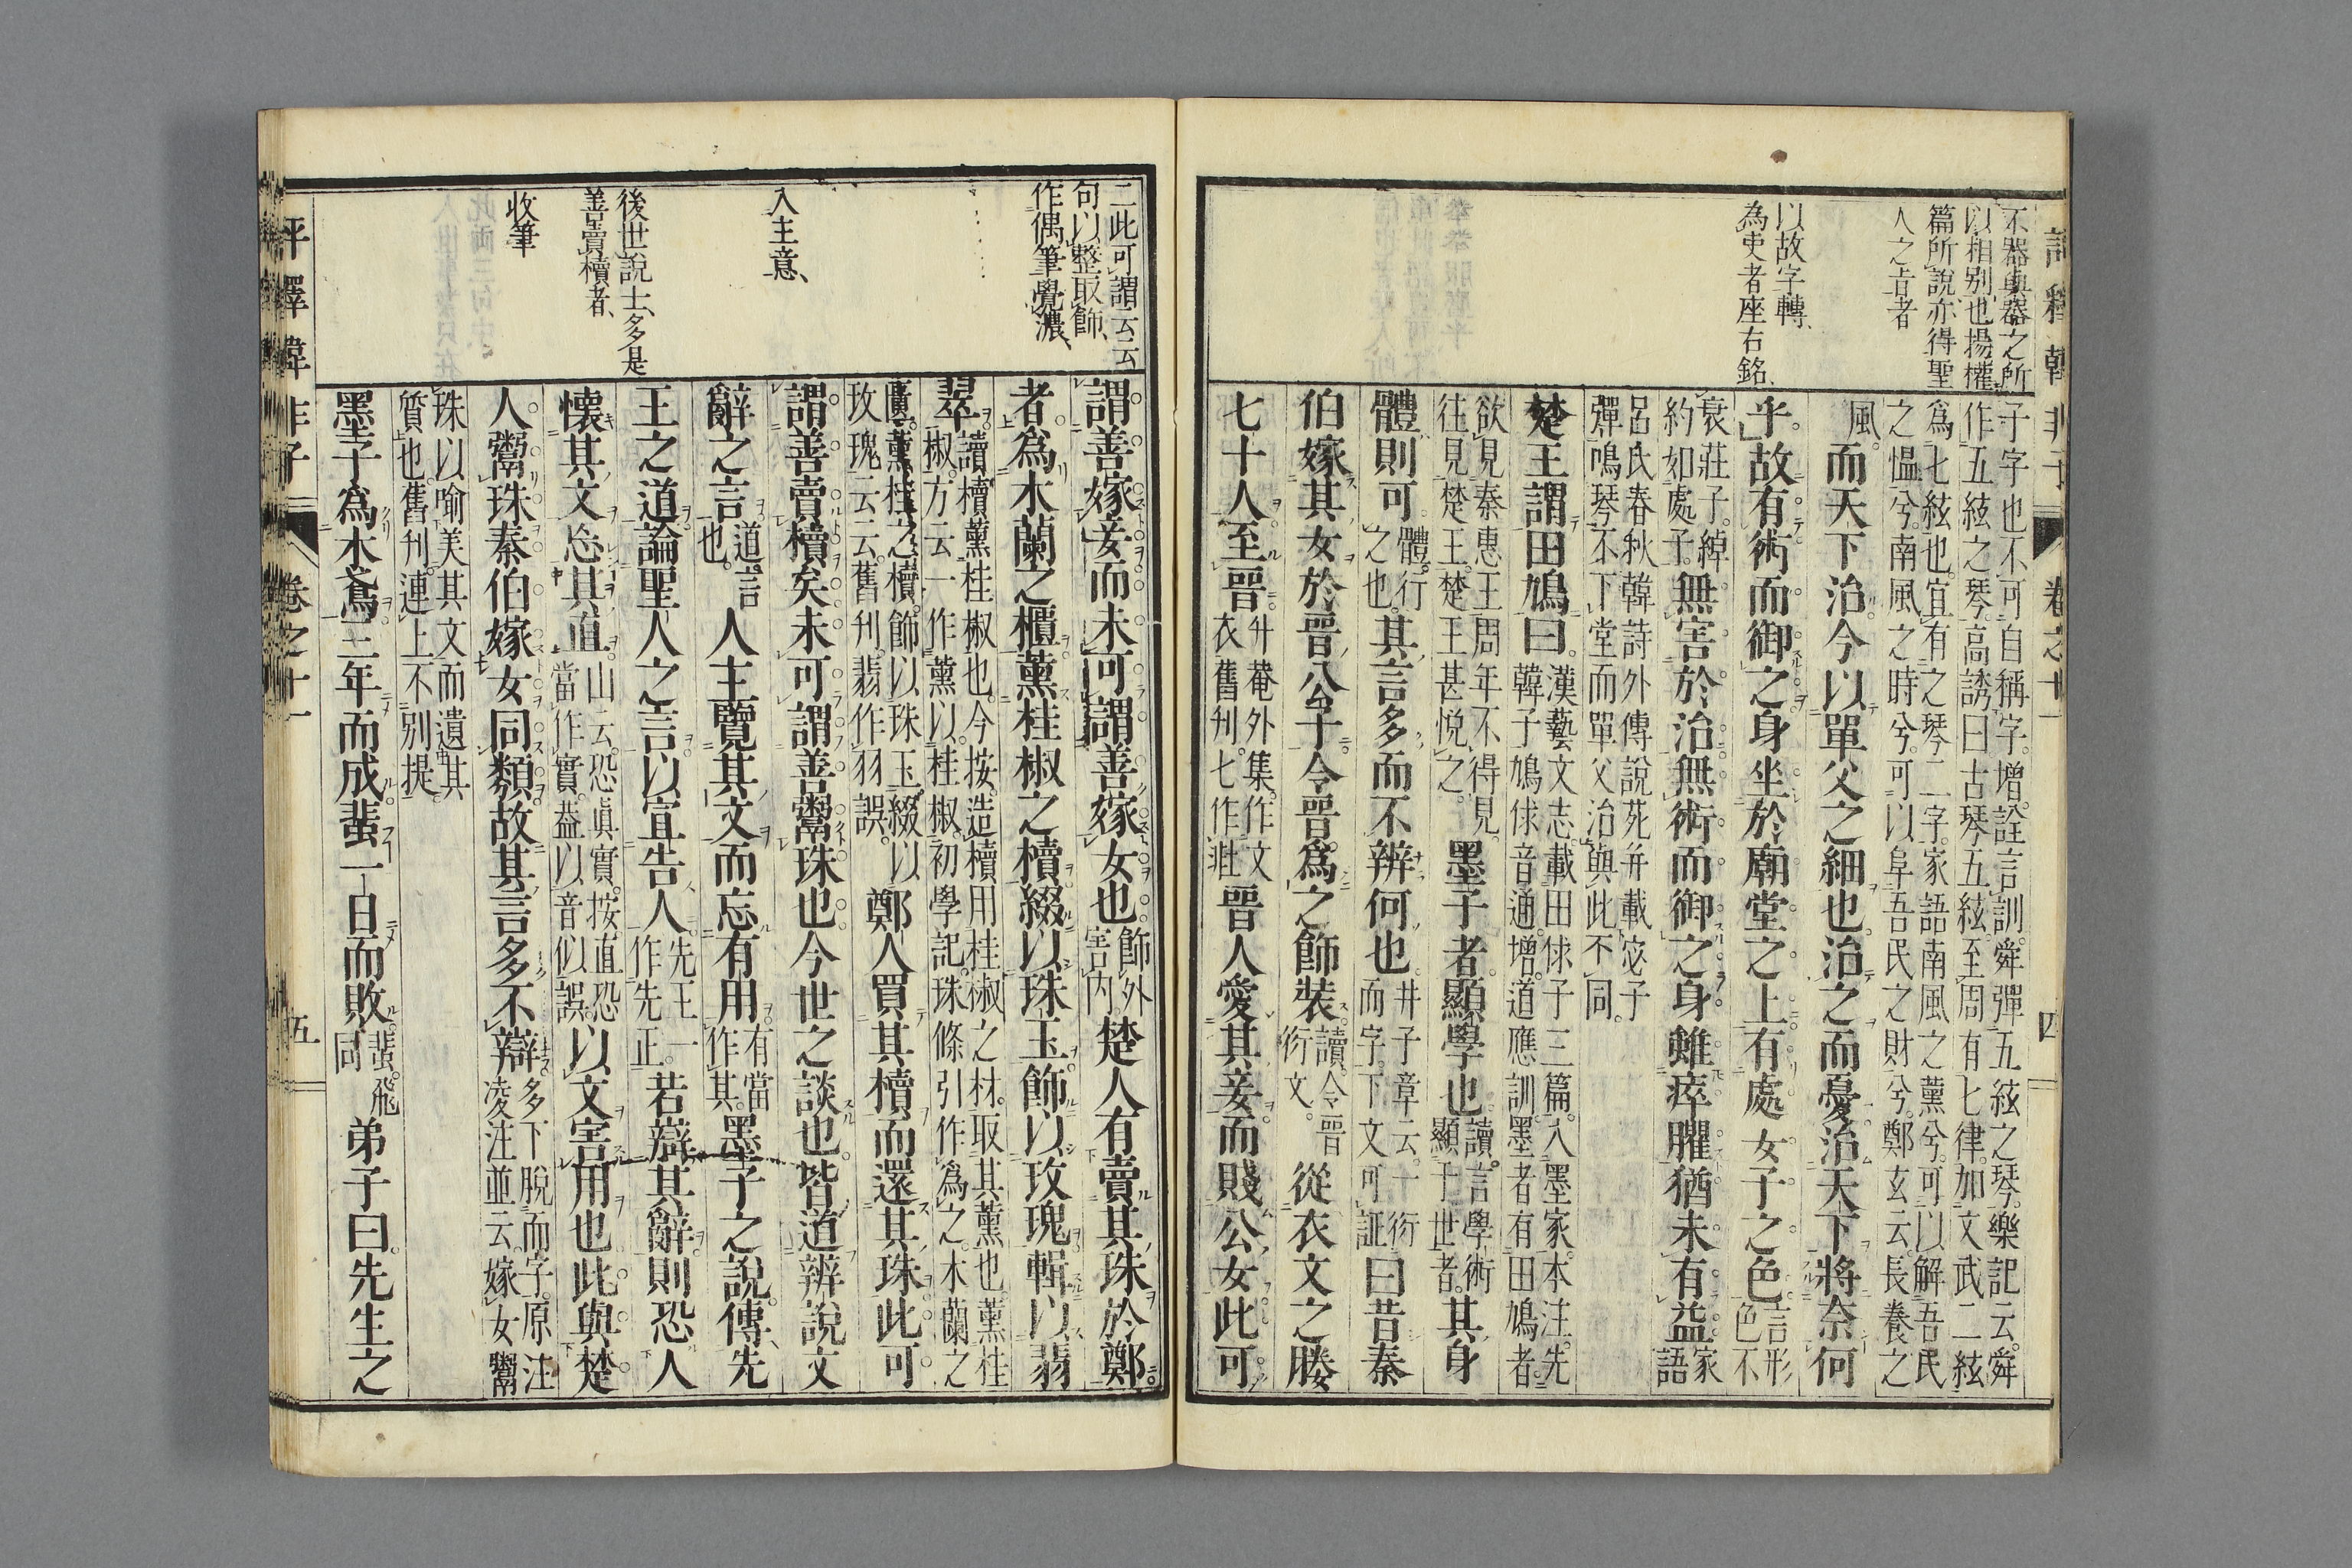 不器與器之所
以相别也揚權
篇所說亦得聖
人之旨者
以故字轉
為吏者座右銘
子字也不可自稱字。增。詮言訓。舜彈五絃之琴。樂記云。舜
作五絃之琴。高誘曰古琴五絃至周有七律。加文武二絃
爲七絃也。宜有之琴二字。家語南風之薰兮。可以解吾民
之慍兮。南風之時兮。可以阜吾民之財兮。鄭玄云。長養之
風。而天下治。今以單父之細也治之而憂。治天下將奈何
乎。故有術而御之。身坐於廟堂之上。有處女子之色。言形色不
衰莊子。綽約如處子。無害於治。無術而御之。身雖瘁臞。猶未有益。家語
呂氏春秋韓詩外傳說苑并載宓子
彈鳴琴不下堂而單父治與此不同。
楚王謂田鳩曰。漢藝文志。載田俅子三篇。入墨家。本注。先韓子鳩俅音通。增。道應訓。墨者有田鳩者。
欲見秦惠王周年不得見。往見楚王。楚王甚悅之。墨子者。顯學也。讀。言學術顯于世者。其身
體則可。體。行之也。其言多而不辨何也。井子章云。一衍而字。下文可証曰昔秦
伯嫁其女於晉公子。令晉爲之飾裝。讀。令晉衍文。從衣文之媵
七十人。至晉。升菴外集。作文衣舊刊。七作壯晉人愛其妾。而賤公女。此可
評釋韓非子 卷之十一 四
二此可謂云云
句以整取飾
作偶筆覺濃
入主意
後世說士多是
善賣櫝者
收筆
謂善嫁妾而未可謂善嫁女也。飾外害内楚人有賣其珠於鄭
者。為木蘭之櫃。薰桂椒之櫝。綴以珠玉。飾以玫瑰。輯以翡
翠。讀櫝薰桂椒也。今按。造櫝用桂椒之材。取其薰也。薰桂椒。方云一作薰以桂椒。初學記。珠條引作為之。木蘭之
匱。薰桂之櫝。飾以珠玉。綴以玫瑰云云。舊刊。翡作羽誤。鄭人買其櫝而還其珠。此可
謂善賣櫝矣。未可謂善鬻珠也。今世之談也。皆道辨說文
辭之言。道。言也。人主覽其文而忘有用。有當作其。墨子之說。傳先
王之道。論聖人之言。以宣告人。先王一作先正。若辯其辭。則恐人
懷其文忘其直。山云。恐眞實。按直恐當作實。益以音似誤。以文害用也。此與楚
人鬻珠秦伯嫁女同類。故其言多不辯。多下脫而字。原注凌注並云。嫁女鬻
珠以喻美其文而遺其
質也。舊刊。連上不別提。
墨子爲木鳶。三年而成。蜚一日而敗。蜚。飛同弟子曰。先生之
評釋韓非子 卷之十一 五